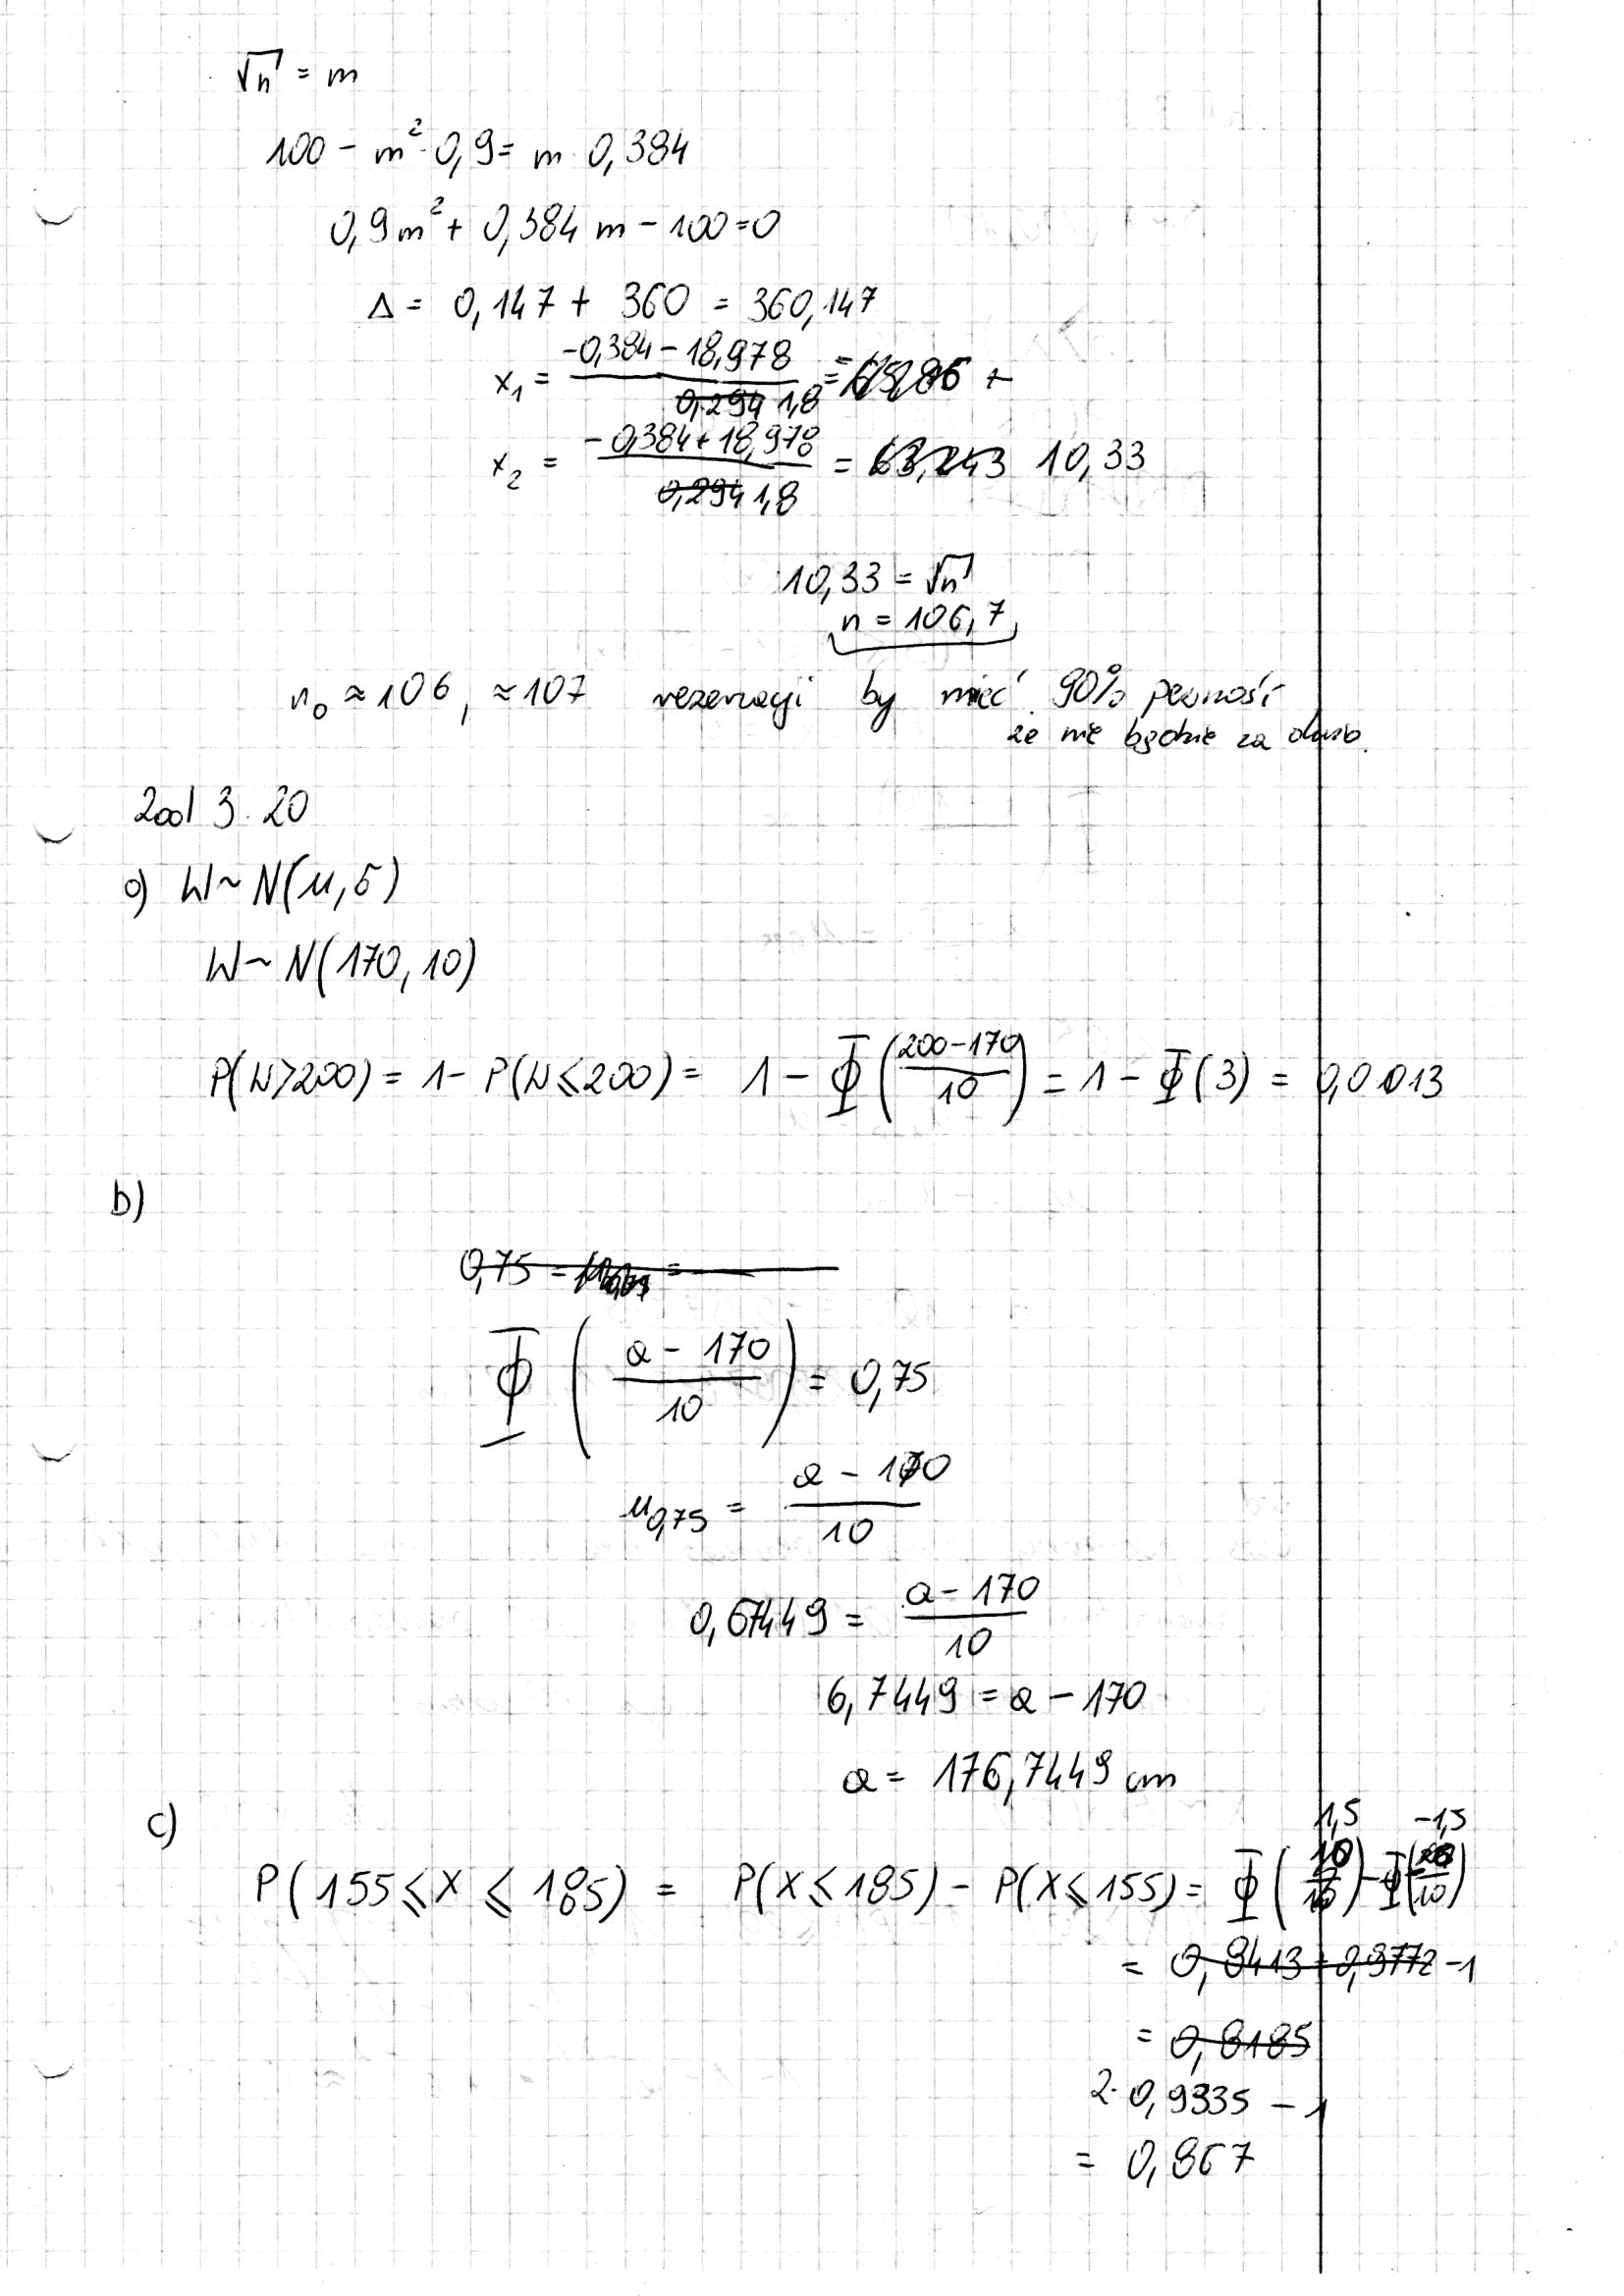 √n = m
100 - m² · 0,9 = m · 0,384
0,9m² + 0,384 m - 100 = 0
Δ = 0,147 + 360 = 360,147
x₁ = (-0,384 - 18,978) / (0,294 1,8) =
x₂ = (-0,384 + 18,978) / (0,294 1,8) = 63,243 10,33
10,33 = √n
n = 106,7
n₀ ≈ 106, ≈ 107 rezerwacji by mieć 90% pewność
że nie będzie za dużo.
Zad 3.20
a) W ~ N(μ, σ)
W ~ N(170, 10)
P(W>200) = 1 - P(W ≤ 200) = 1 - Φ((200-170)/10) = 1 - Φ(3) = 0,0013
b)
0,75 =
Φ((a - 170)/10) = 0,75
μ₀,₇₅ = (a - 170)/10
0,67449 = (a - 170)/10
6,7449 = a - 170
a = 176,7449 cm
c)
1,5 -1,5
P(155 ≤ X ≤ 185) = P(X ≤ 185) - P(X ≤ 155) = Φ(10/10) - Φ(-20/10)
= 0,8413 + 0,9772 - 1
= 0,8185
2 · 0,9335 - 1
= 0,867